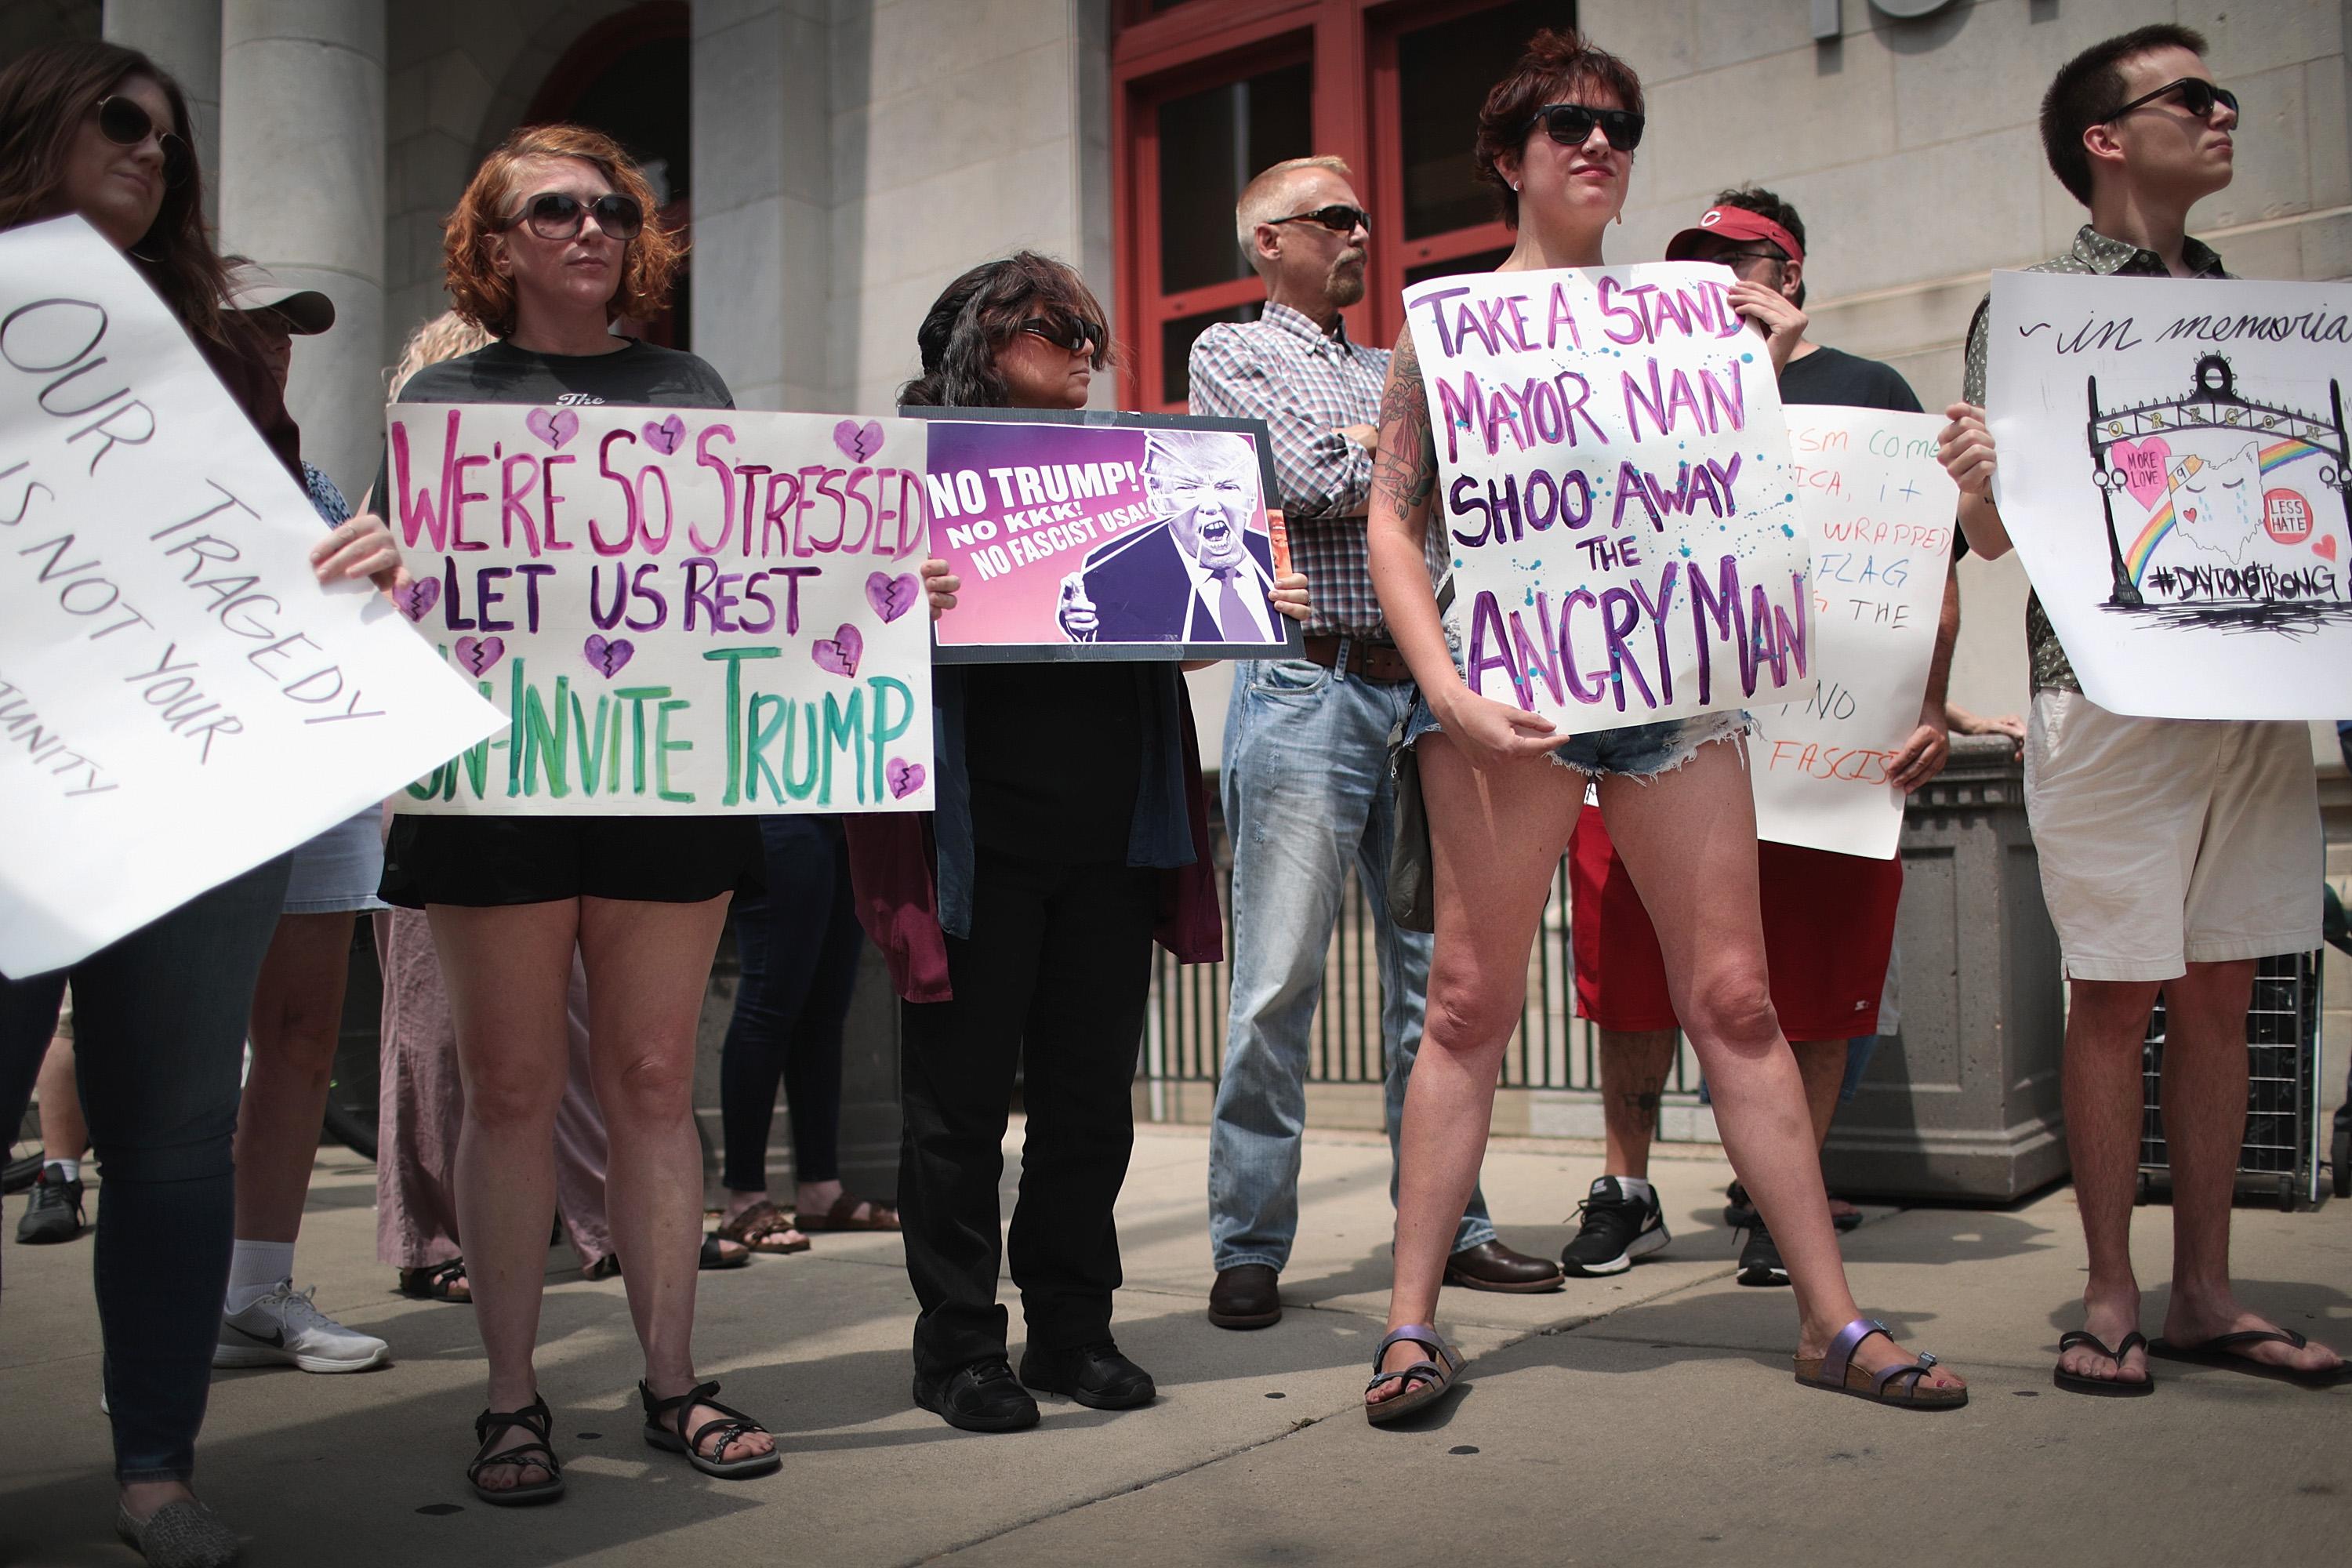 OUR TRAGEDY
IS NOT YOUR
The
WE'RE SO STRESSED
LET US REST
UN-INVITE TRUMP
NO TRUMP!
NO KKK!
NO FASCIST USA!
TAKE A STAND
MAYOR NAN
SHOO AWAY
THE
ANGRY MAN
C
WRAPPED
FLAG
THE
NO
FASCIS
~ in memoria
OREGON
MORE
LOVE
LESS
HATE
#DAYTONSTRONG